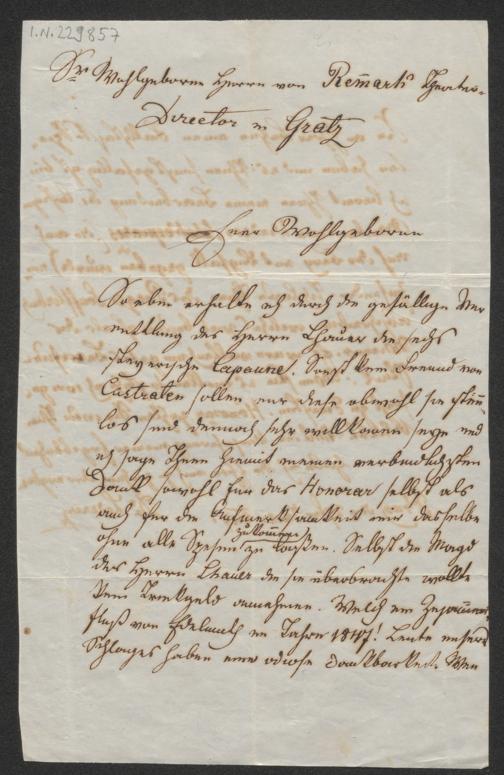 I.N. 229857
Sr Wohlgeborn Herrn von Remark Theater-
Director in Gratz
Euer Wohlgeboren
So eben erhalte ich durch die gefällige Ver
mittlung des Herrn Lhauer die sechs
steyerische Capaune. Sonst kein Freund von
Castraten sollen mir diese obwohl sie stim̅
los sind dennoch sehr willkom̅en seyn und
ich sage Ihnen hiemit meinen verbindlichsten
Dank sowohl für das Honorar selbst als
auch für die Aufmerksamkeit mir dasselbe
ohne alle Spesen zukom̅en zu laßen. Selbst die Magd
des Herrn Lhauer die sie überbrachte wollte
kein Trinkgeld annehmen. Welch ein Zusam̅en
fluß von Edelmuth im Jahre 1847! Leute unsers
Schlages haben eine odiose Dankbarkeit. Wen